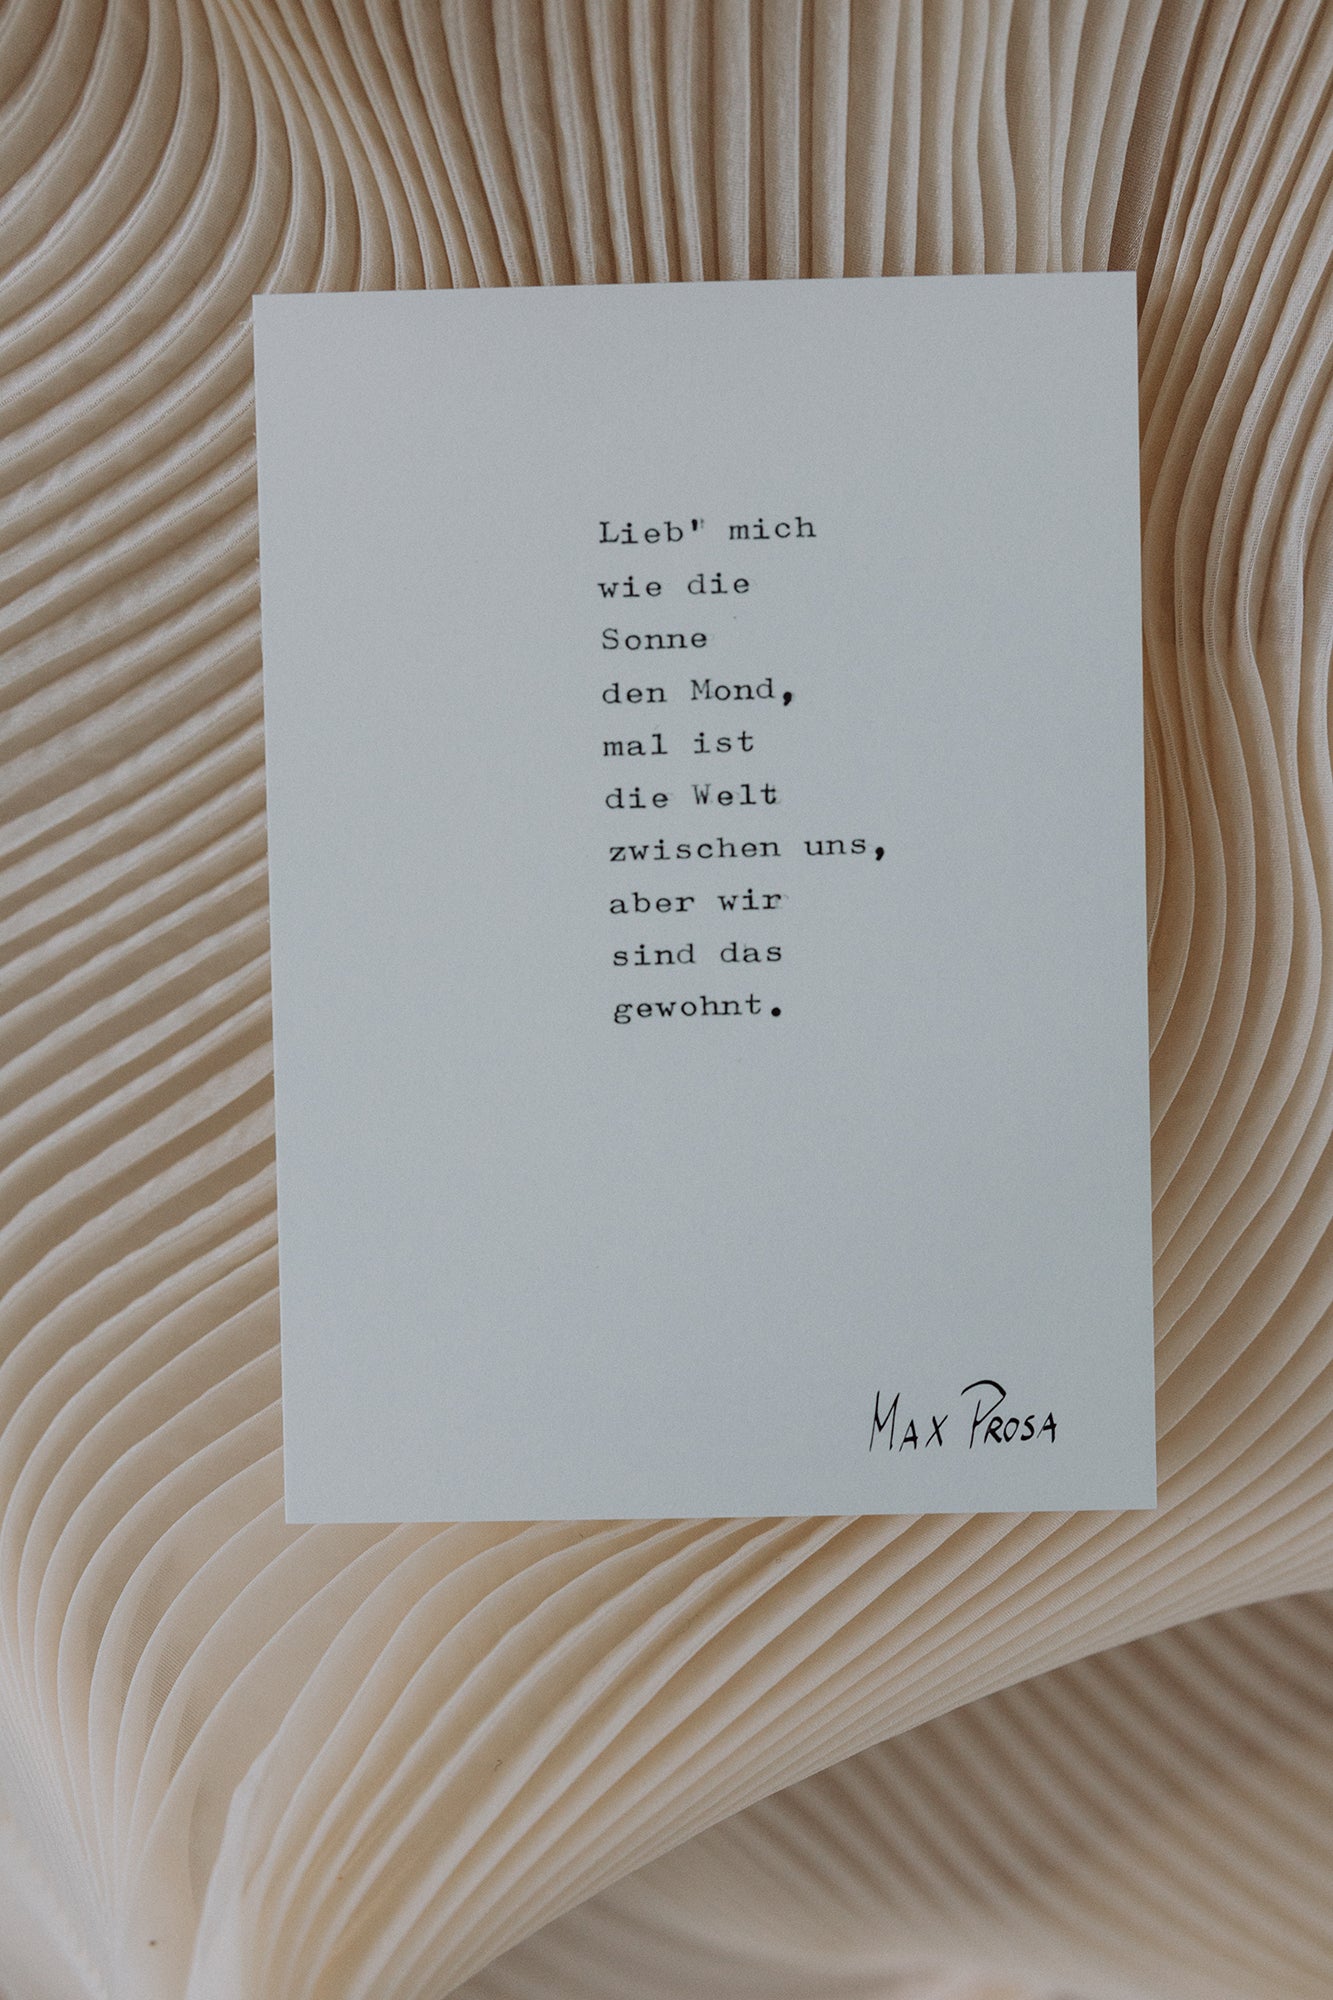 Lieb" mich
wie die
Sonne
den Mond,
mal ist
die Welt
zwischen uns,
aber wir
sind das
gewohnt.
MAX PROSA